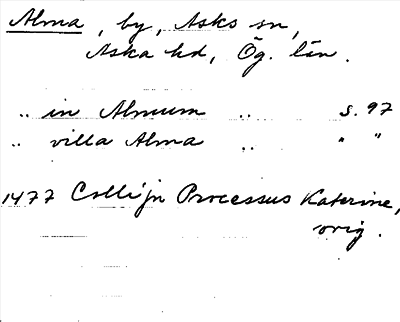 Alma, by, Asks sn,
Aska hd, Ög. län.
.. in Almum .. s. 97
.. villa Alma .. " "
1477 Collijn Processus Katerine,
orig.